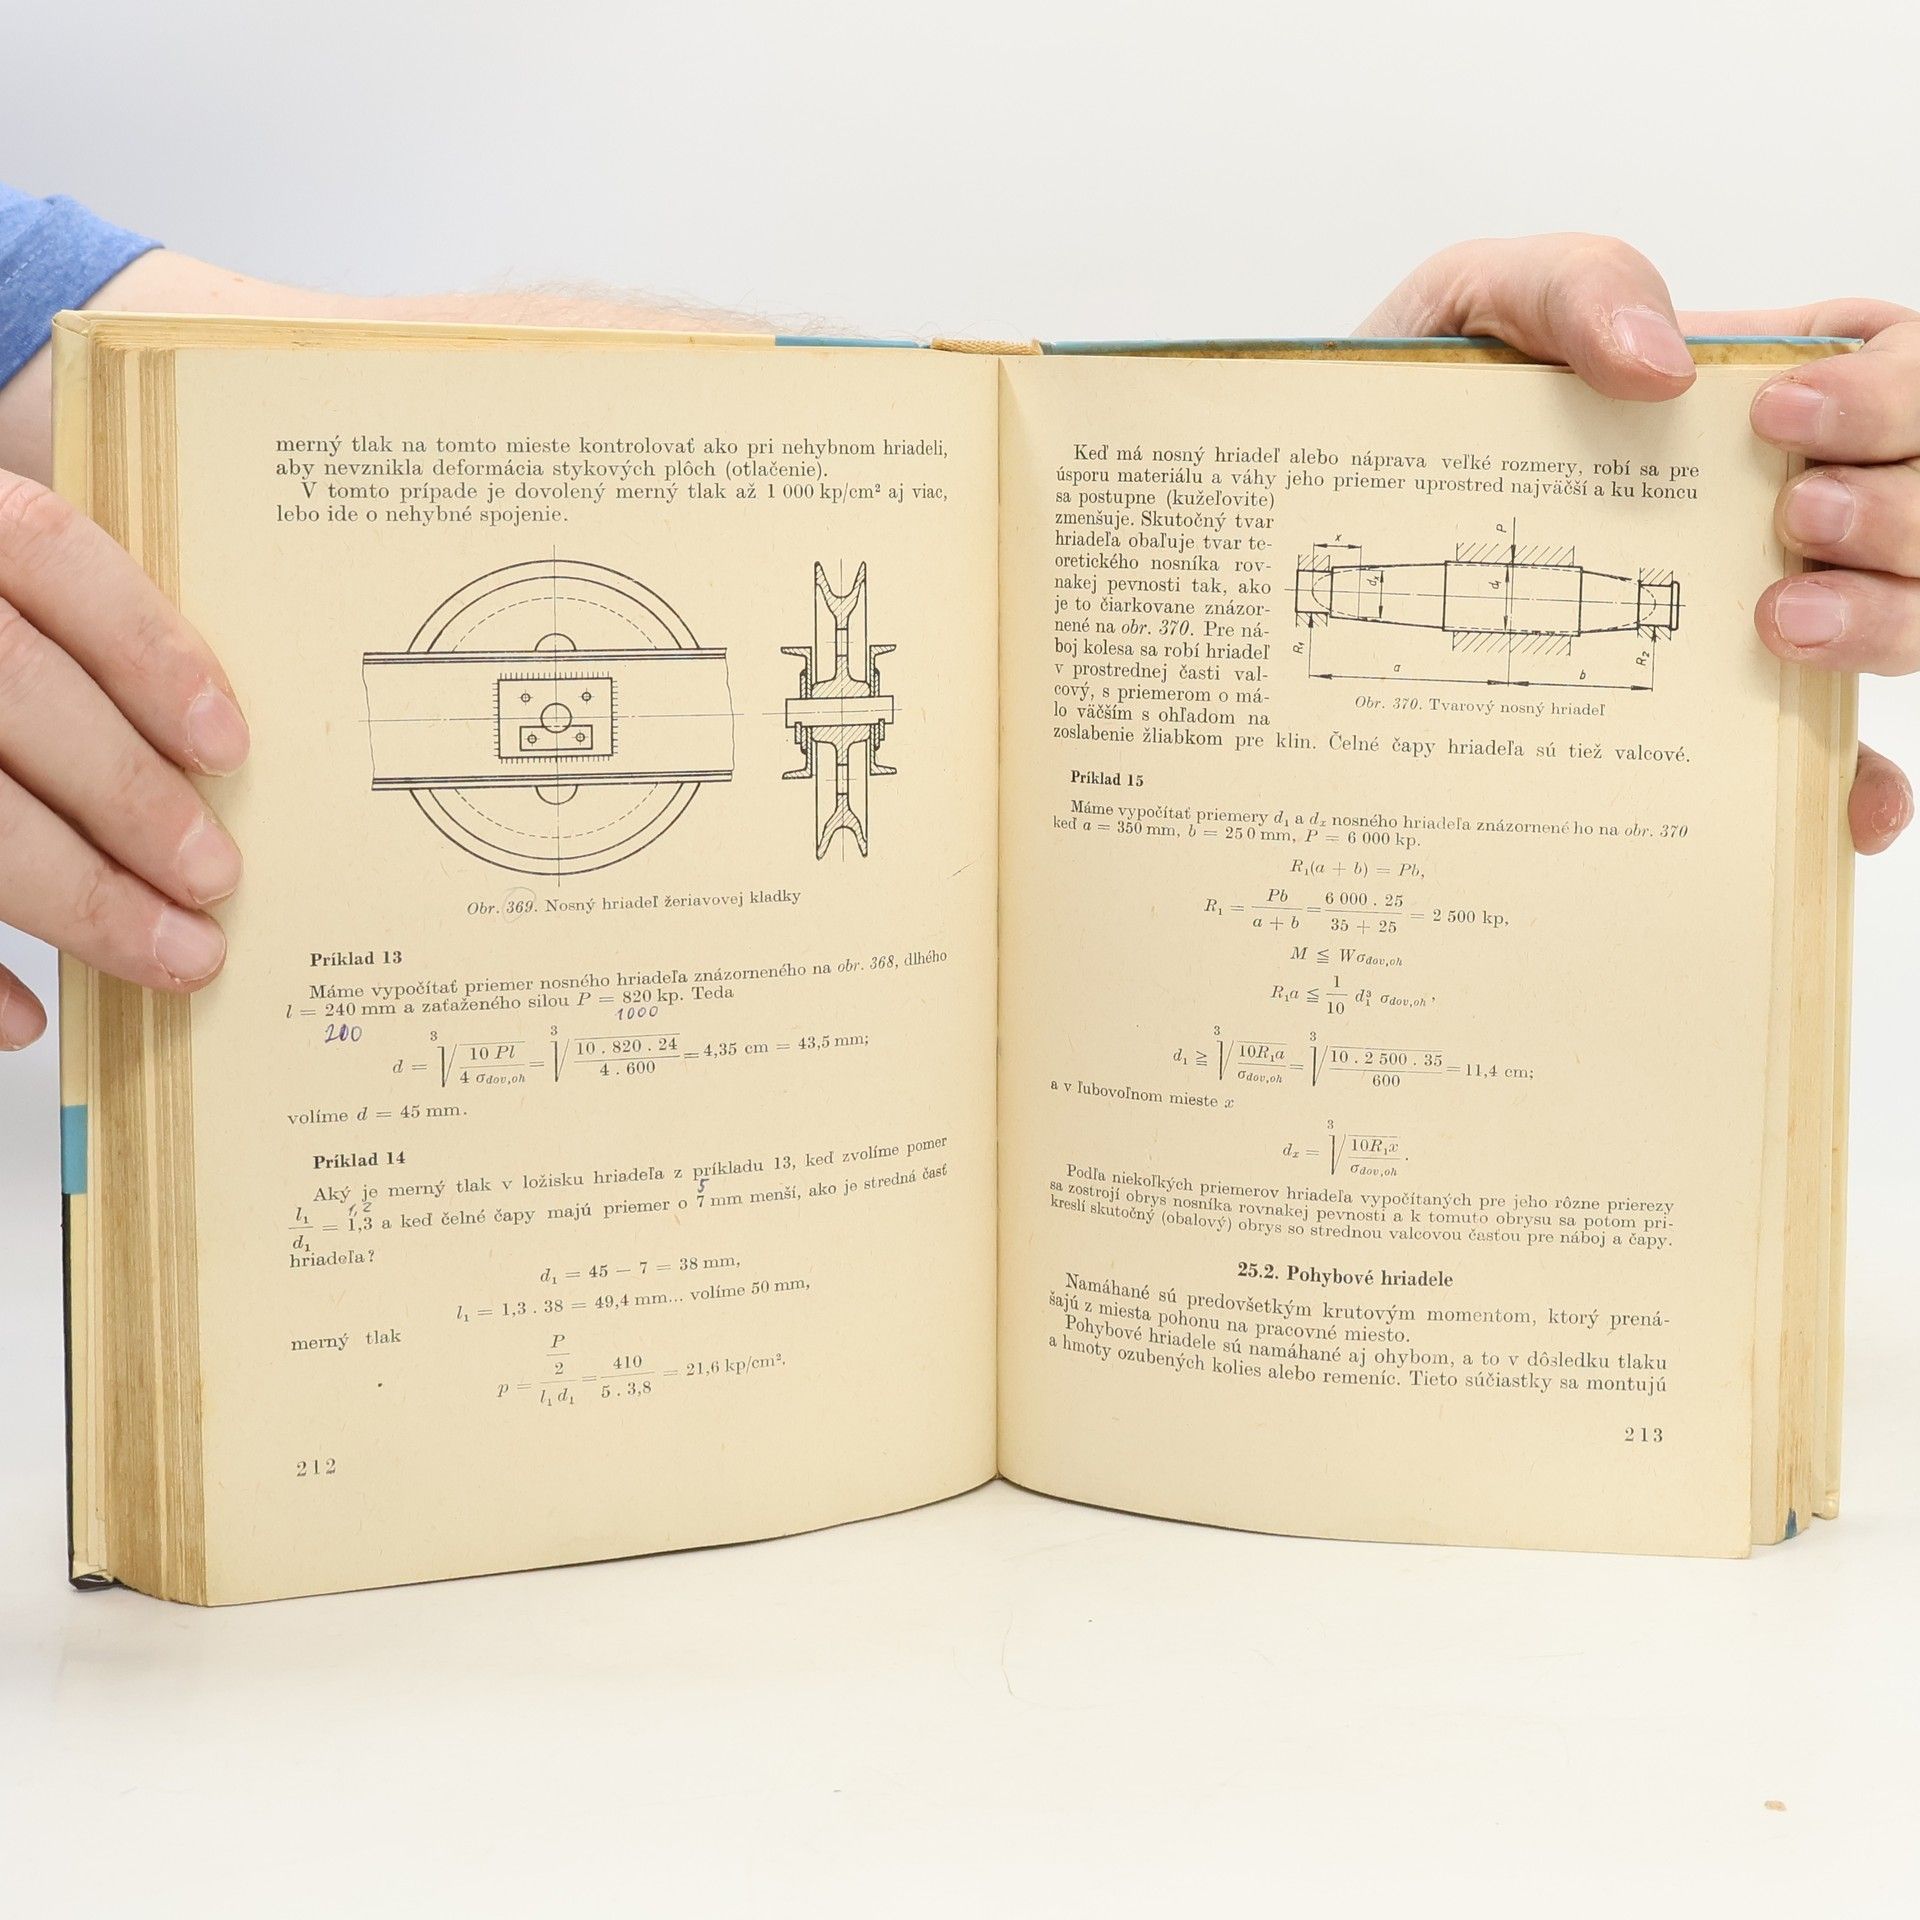 merný tlak na tomto mieste kontrolovať ako pri nehybnom hriadeli,
aby nevznikla deformácia stykových plôch (otlačenie).
V tomto prípade je dovolený merný tlak až 1 000 kp/cm² aj viac,
lebo ide o nehybné spojenie.
Obr. 369. Nosný hriadeľ žeriavovej kladky
Príklad 13
Máme vypočítať priemer nosného hriadeľa znázorneného na obr. 368, dlhého
l = 240 mm a zaťaženého silou P = 820 kp. Teda
200 1000
d = ∛(10 Pl / 4 σdov,oh) = ∛(10 . 820 . 24 / 4 . 600) = 4,35 cm = 43,5 mm;
volíme d = 45 mm.
Príklad 14
Aký je merný tlak v ložisku hriadeľa z príkladu 13, keď zvolíme pomer
1,2 5
l₁/d₁ = 1,3 a keď čelné čapy majú priemer o 7 mm menší, ako je stredná časť
hriadeľa?
d₁ = 45 − 7 = 38 mm,
l₁ = 1,3 . 38 = 49,4 mm... volíme 50 mm,
merný tlak
p = (P/2) / (l₁ d₁) = 410 / (5 . 3,8) = 21,6 kp/cm².
212
Keď má nosný hriadeľ alebo náprava veľké rozmery, robí sa pre
úsporu materiálu a váhy jeho priemer uprostred najväčší a ku koncu
sa postupne (kužeľovite)
zmenšuje. Skutočný tvar
hriadeľa obaľuje tvar te-
oretického nosníka rov-
nakej pevnosti tak, ako
je to čiarkovane znázor-
nené na obr. 370. Pre ná-
boj kolesa sa robí hriadeľ
v prostrednej časti val-
cový, s priemerom o má-
lo väčším s ohľadom na
zoslabenie žliabkom pre klin. Čelné čapy hriadeľa sú tiež valcové.
P
x
R₁
R₂
a
b
Obr. 370. Tvarový nosný hriadeľ
Príklad 15
Máme vypočítať priemery d₁ a dₓ nosného hriadeľa znázornené ho na obr. 370
keď a = 350 mm, b = 250 mm, P = 6 000 kp.
R₁(a + b) = Pb,
R₁ = Pb / (a + b) = 6 000 . 25 / (35 + 25) = 2 500 kp,
M ≦ Wσdov,oh
R₁a ≦ 1/10 d₁³ σdov,oh,
d₁ ≧ ∛(10R₁a / σdov,oh) = ∛(10 . 2 500 . 35 / 600) = 11,4 cm;
a v ľubovoľnom mieste x
dₓ = ∛(10R₁x / σdov,oh).
Podľa niekoľkých priemerov hriadeľa vypočítaných pre jeho rôzne prierezy
sa zostrojí obrys nosníka rovnakej pevnosti a k tomuto obrysu sa potom pri-
kreslí skutočný (obalový) obrys so strednou valcovou časťou pre náboj a čapy.
25.2. Pohybové hriadele
Namáhané sú predovšetkým krutovým momentom, ktorý prená-
šajú z miesta pohonu na pracovné miesto.
Pohybové hriadele sú namáhané aj ohybom, a to v dôsledku tlaku
a hmoty ozubených kolies alebo remeníc. Tieto súčiastky sa montujú
213